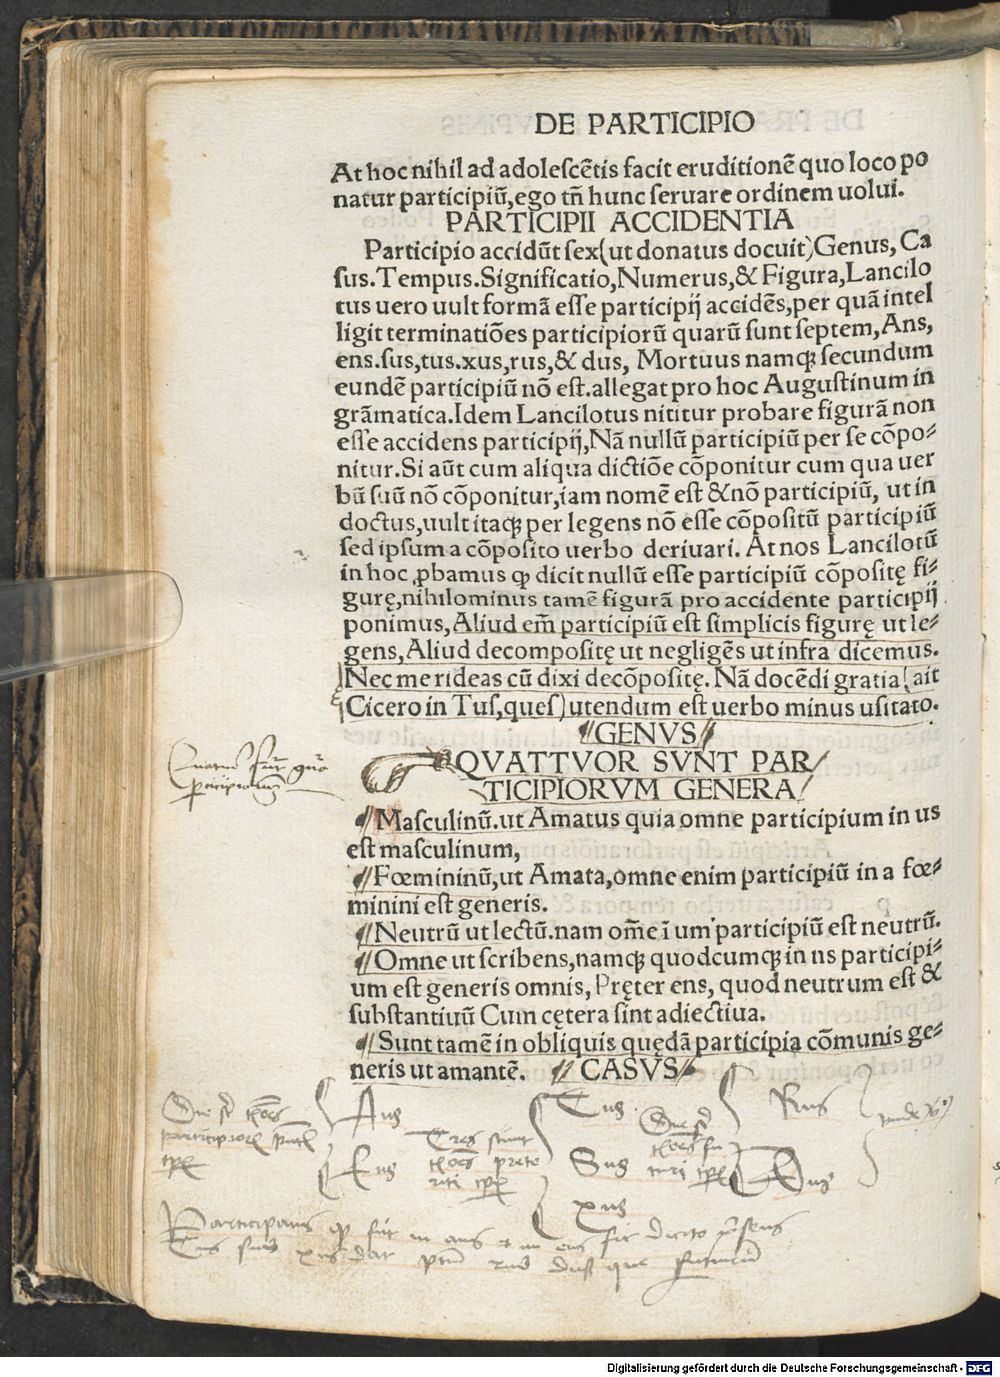 DE PARTICIPIO
At hoc nihil ad adolescẽtis facit eruditionẽ quo loco po
natur participiũ,ego tñ hunc seruare ordinem uolui.
PARTICIPII ACCIDENTIA
Participio accidũt sex(ut donatus docuit)Genus, Ca
sus.Tempus.Significatio,Numerus,& Figura,Lancilo
tus uero uult formã esse participij accidẽs,per quã intel
ligit terminatiões participiorũ quarũ sunt septem,Ans,
ens.sus,tus.xus,rus,& dus, Mortuus namq; secundum
eundẽ participiũ nõ est.allegat pro hoc Augustinum in
grãmatica.Idem Lancilotus nititur probare figurã non
esse accidens participij,Nã nullũ participiũ per se cõpo⸗
nitur.Si aũt cum aliqua dictiõe cõponitur cum qua uer
bũ suũ nõ cõponitur,iam nomẽ est &nõ participiũ, ut in
doctus,uult itaq; per legens nõ esse cõpositũ participiũ
sed ipsum a cõposito uerbo deriuari. At nos Lancilotũ
in hoc ꝓbamus ꝙ dicit nullũ esse participiũ cõpositę fi⸗
gurę,nihilominus tamẽ figurã pro accidente participij
ponimus,Aliud em̃ participiũ est simplicis figurę ut le⸗
gens,Aliud decompositę ut negligẽs ut infra dicemus.
Nec me rideas cũ dixi decõpositę. Nã docẽdi gratia(ait
Cicero in Tus,ques)utendum est uerbo minus usitato.
GENVS
QVATTVOR SVNT PAR
TICIPIORVM GENERA
Masculinũ.ut Amatus quia omne participium in us
est masculinum,
Fœmininũ,ut Amata,omne enim participiũ in a fœ⸗
minini est generis.
Neutrũ ut lectũ.nam om̃e ĩ um participiũ est neutrũ.
Omne ut scribens,namq; quodcumq; in ns participi⸗
um est generis omnis, Pręter ens, quod neutrum est &
substantiuũ Cum cętera sint adiectiua.
Sunt tamẽ in obliquis quędã participia cõmunis ge⸗
neris ut amantẽ. CASVS
Ans
Ens
Tus
Sus
xus
Rus
Dus
Digitalisierung gefördert durch die Deutsche Forschungsgemeinschaft - DFG